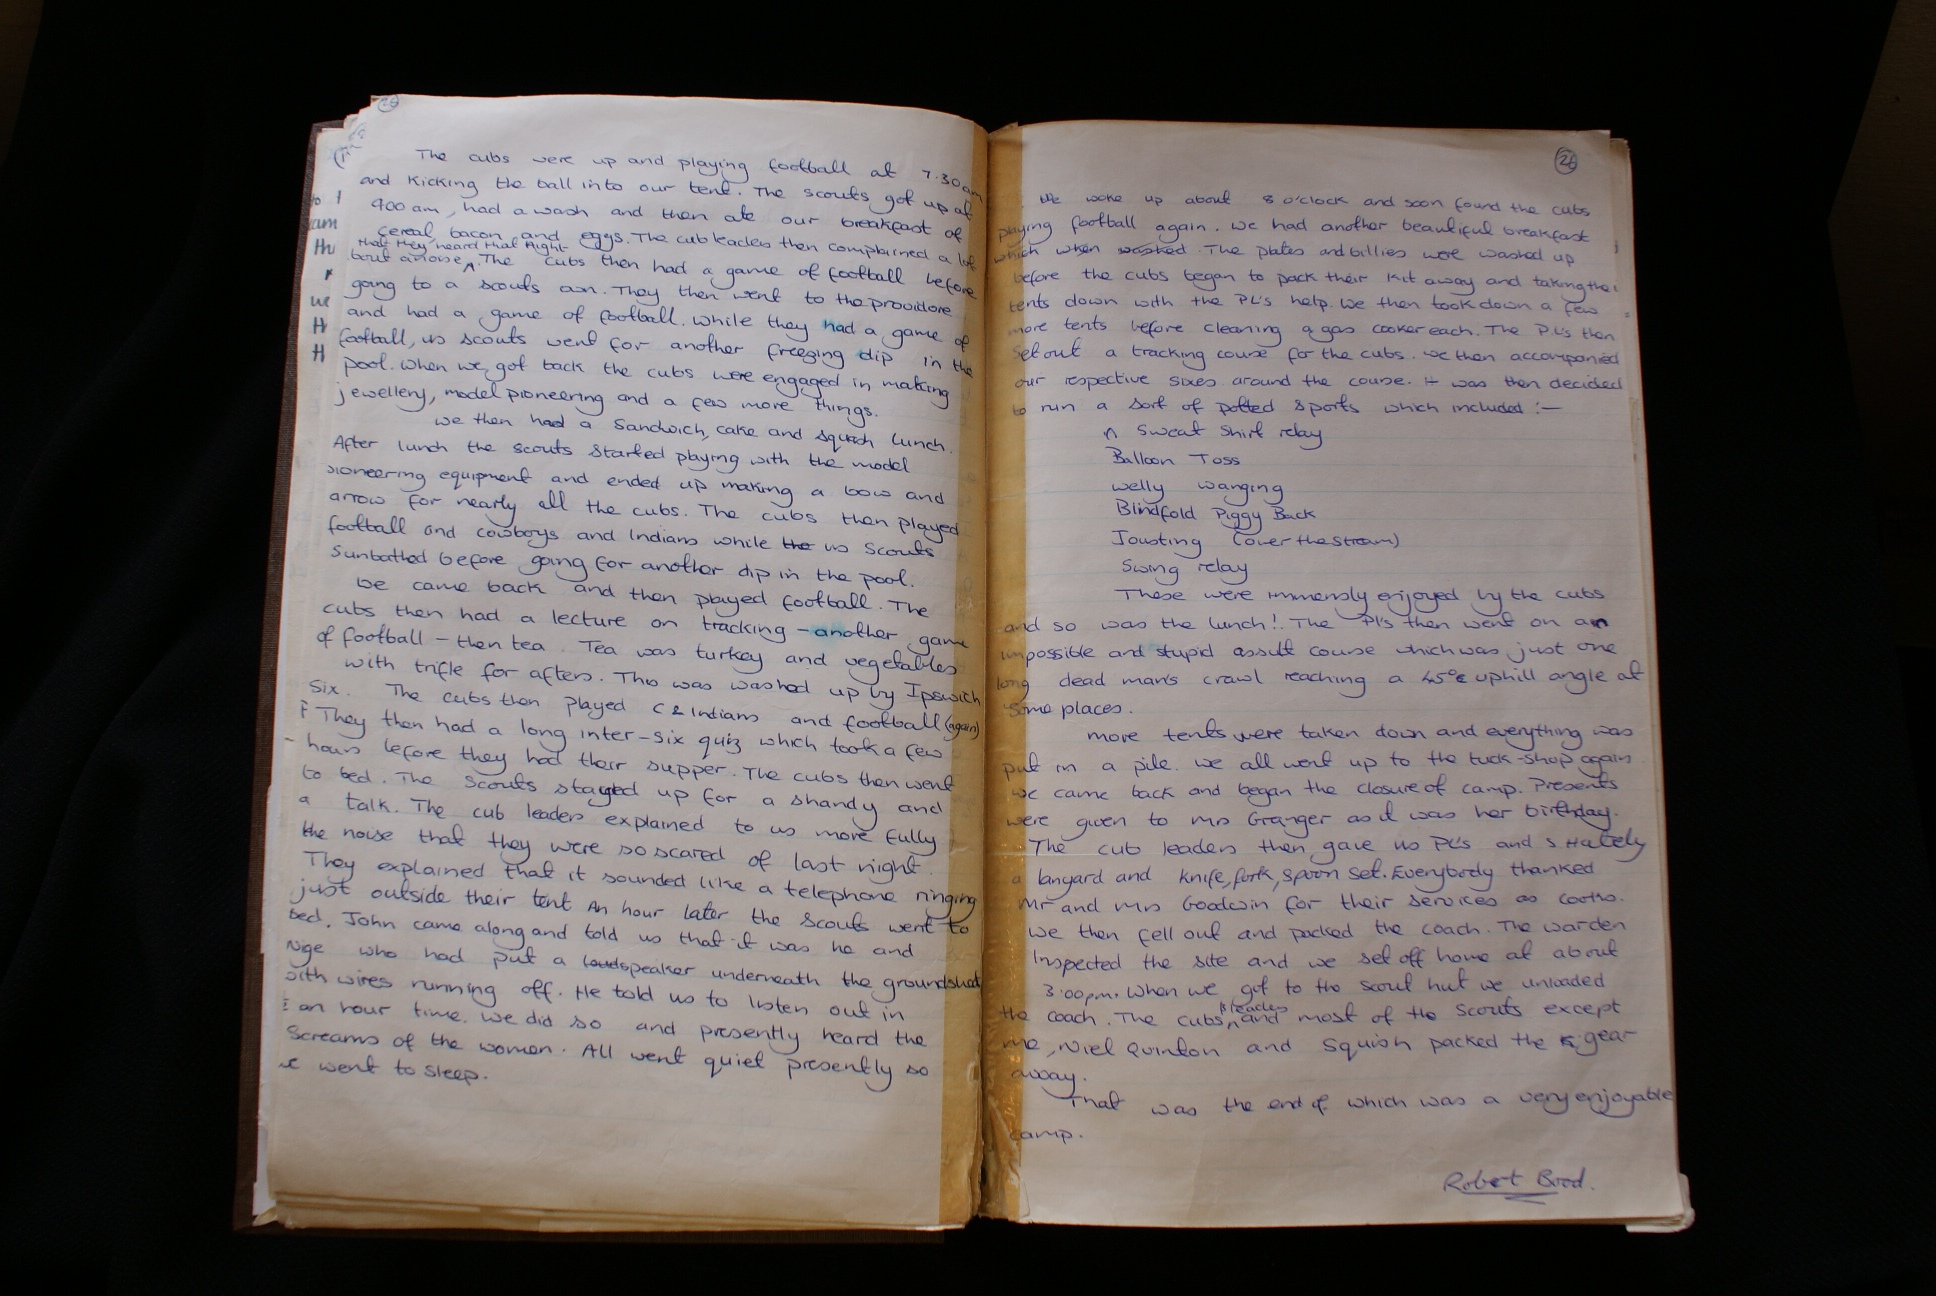 25
The cubs were up and playing football at 7.30am
and kicking the ball into our tent. The scouts got up at
900 am, had a wash and then ate our breakfast of
cereal, bacon and eggs. The cub leaders then complained a lot
that they heard that night
bout a noise ^. The cubs then had a game of football before
going to a scouts own. They then went to the providore
and had a game of football. While they had a game of
football, us scouts went for another freezing dip in the
pool. When we got back the cubs were engaged in making
jewellery, model pioneering and a few more things.
We then had a sandwich, cake and squash lunch.
After lunch the scouts started playing with the model
pioneering equipment and ended up making a bow and
arrow for nearly all the cubs. The cubs then played
football and cowboys and Indians while the us scouts
sunbathed before going for another dip in the pool.
We came back and then played football. The
cubs then had a lecture on tracking - another game
of football - then tea. Tea was turkey and vegetables
with trifle for afters. This was washed up by Ipswich
Six. The cubs then played C & Indians and football (again)
They then had a long inter-six quiz which took a few
hours before they had their supper. The cubs then went
to bed. The scouts stayed up for a shandy and
a talk. The cub leaders explained to us more fully
the noise that they were so scared of last night.
They explained that it sounded like a telephone ringing
just outside their tent An hour later the scouts went to
bed. John came along and told us that it was he and
Nige who had put a loudspeaker underneath the groundsheet
with wires running off. He told us to listen out in
an hour time. We did so and presently heard the
screams of the women. All went quiet presently so
we went to sleep.
26
We woke up about 8 o'clock and soon found the cubs
playing football again. We had another beautiful breakfast
which when washed. The plates and billies were washed up
before the cubs began to pack their kit away and taking the
tents down with the PL's help. We then took down a few
more tents before cleaning a gas cooker each. The P.L's then
set out a tracking course for the cubs. We then accompanied
our respective sixes around the course. It was then decided
to run a sort of potted sports which included :-
A Sweat Shirt relay
Balloon Toss
Welly wanging
Blindfold Piggy Back
Jousting (over the stream)
Swing relay
These were immensly enjoyed by the cubs
and so was the lunch!. The PL's then went on an
impossible and stupid assult course which was just one
long dead man's crawl reaching a 45° uphill angle at
some places.
More tents were taken down and everything was
put in a pile. We all went up to the tuck-shop again
we came back and began the closure of camp. Presents
were given to Mrs Granger as it was her birthday.
The cub leaders then gave us PL's and S. Hately
a lanyard and knife, fork, spoon set. Everybody thanked
Mr and Mrs Goodwin for their services as cooks.
We then fell out and packed the coach. The warden
inspected the site and we set off home at about
3.00pm. When we got to the scout hut we unloaded
leaders
the coach. The cubs, ^ and most of the scouts except
me, Niel Quinton and Squish packed the gear
away.
That was the end of which was a very enjoyable
camp.
Robert Brod.